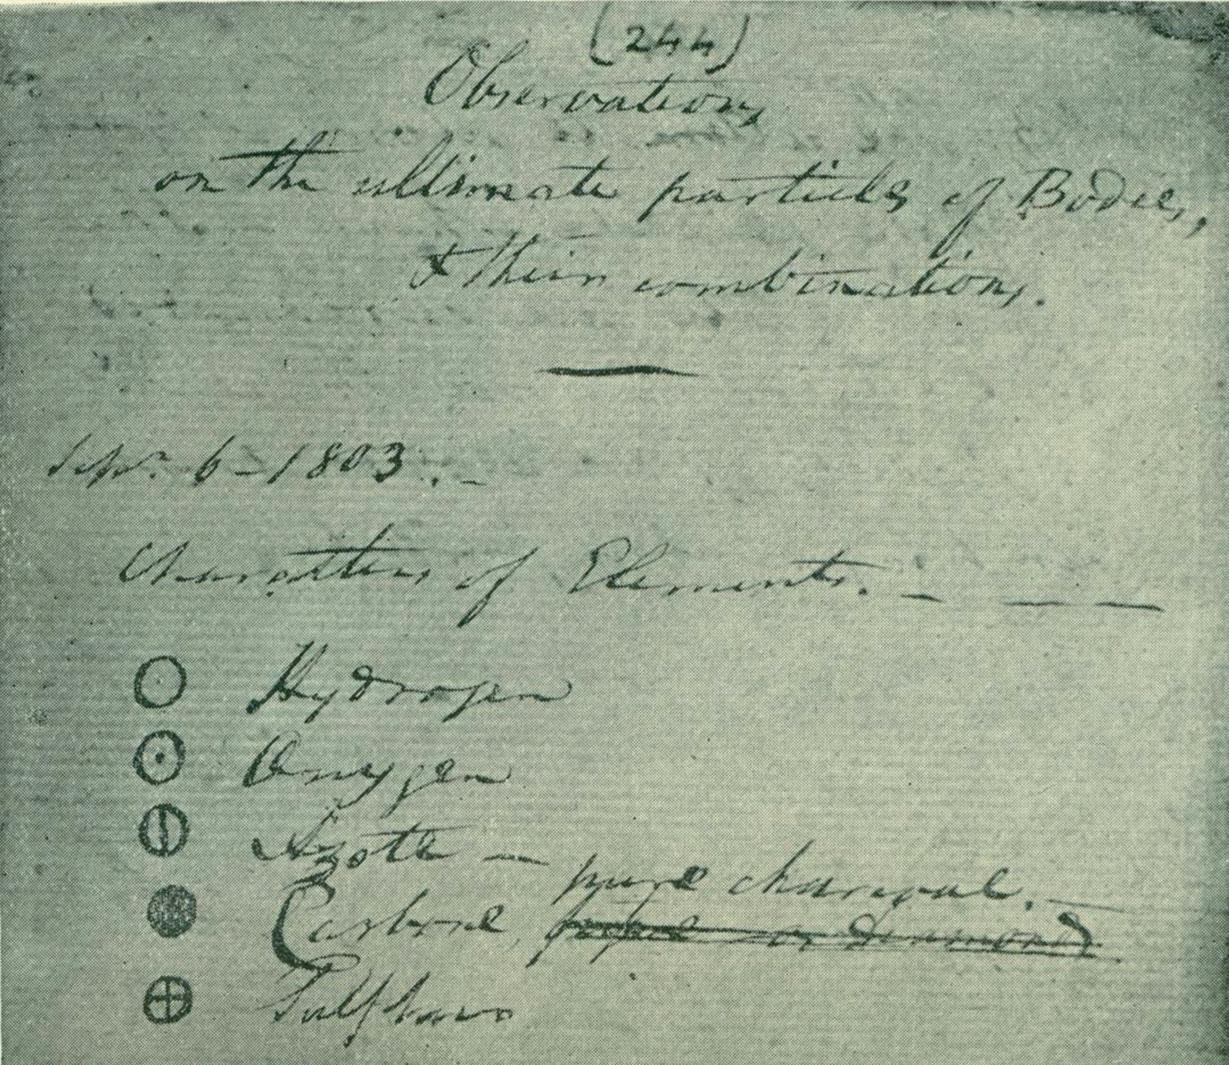 (244)
Observations
on the ultimate particles of Bodies,
& their combinations.
Sepr. 6 - 1803. -
Characters of Elements. - — —
Hydrogen
Oxygen
Azote —
pure charcoal. —
Carbone,
Sulphur